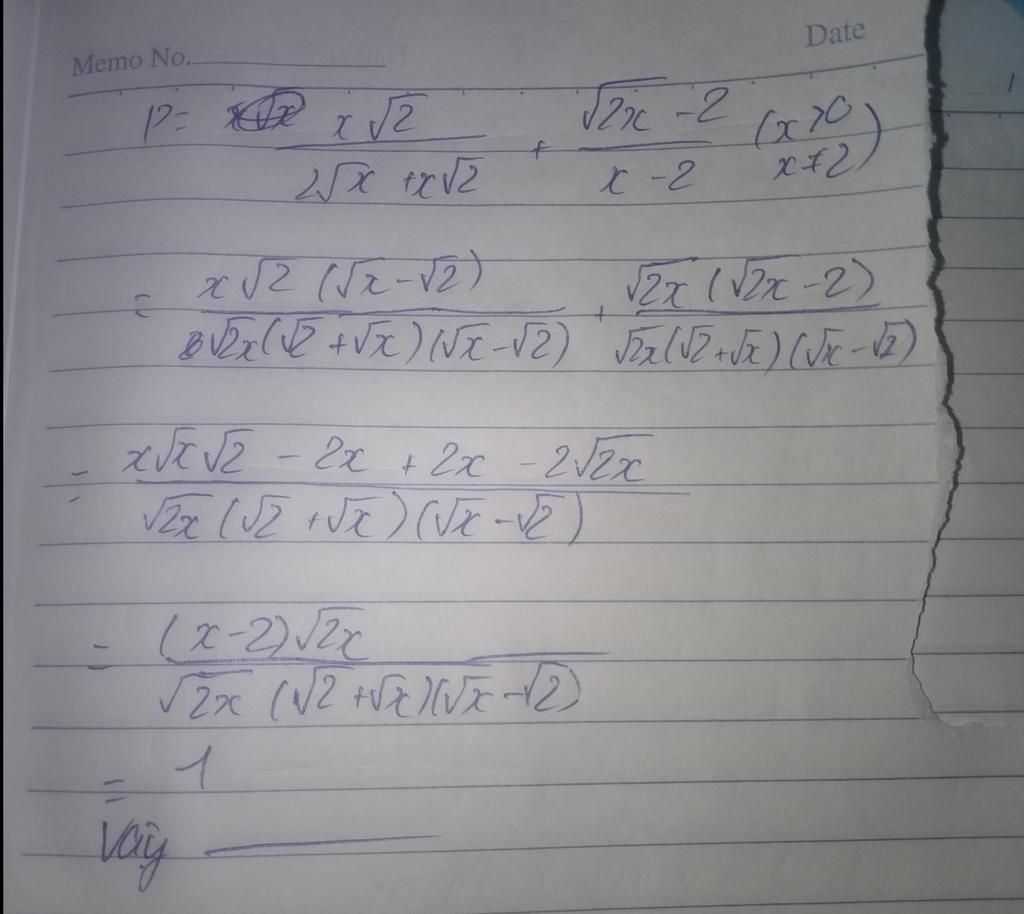 Memo No. Date
P = x√2 / (2√x + x√2) + (√2x - 2) / (x - 2) (x > 0 x ≠ 2)
= x√2 (√x - √2) / √2x(√2 + √x)(√x - √2) + √2x (√2x - 2) / √2x(√2 + √x)(√x - √2)
= (x√x√2 - 2x + 2x - 2√2x) / √2x (√2 + √x)(√x - √2)
= (x - 2)√2x / √2x (√2 + √x)(√x - √2)
= 1
Vậy